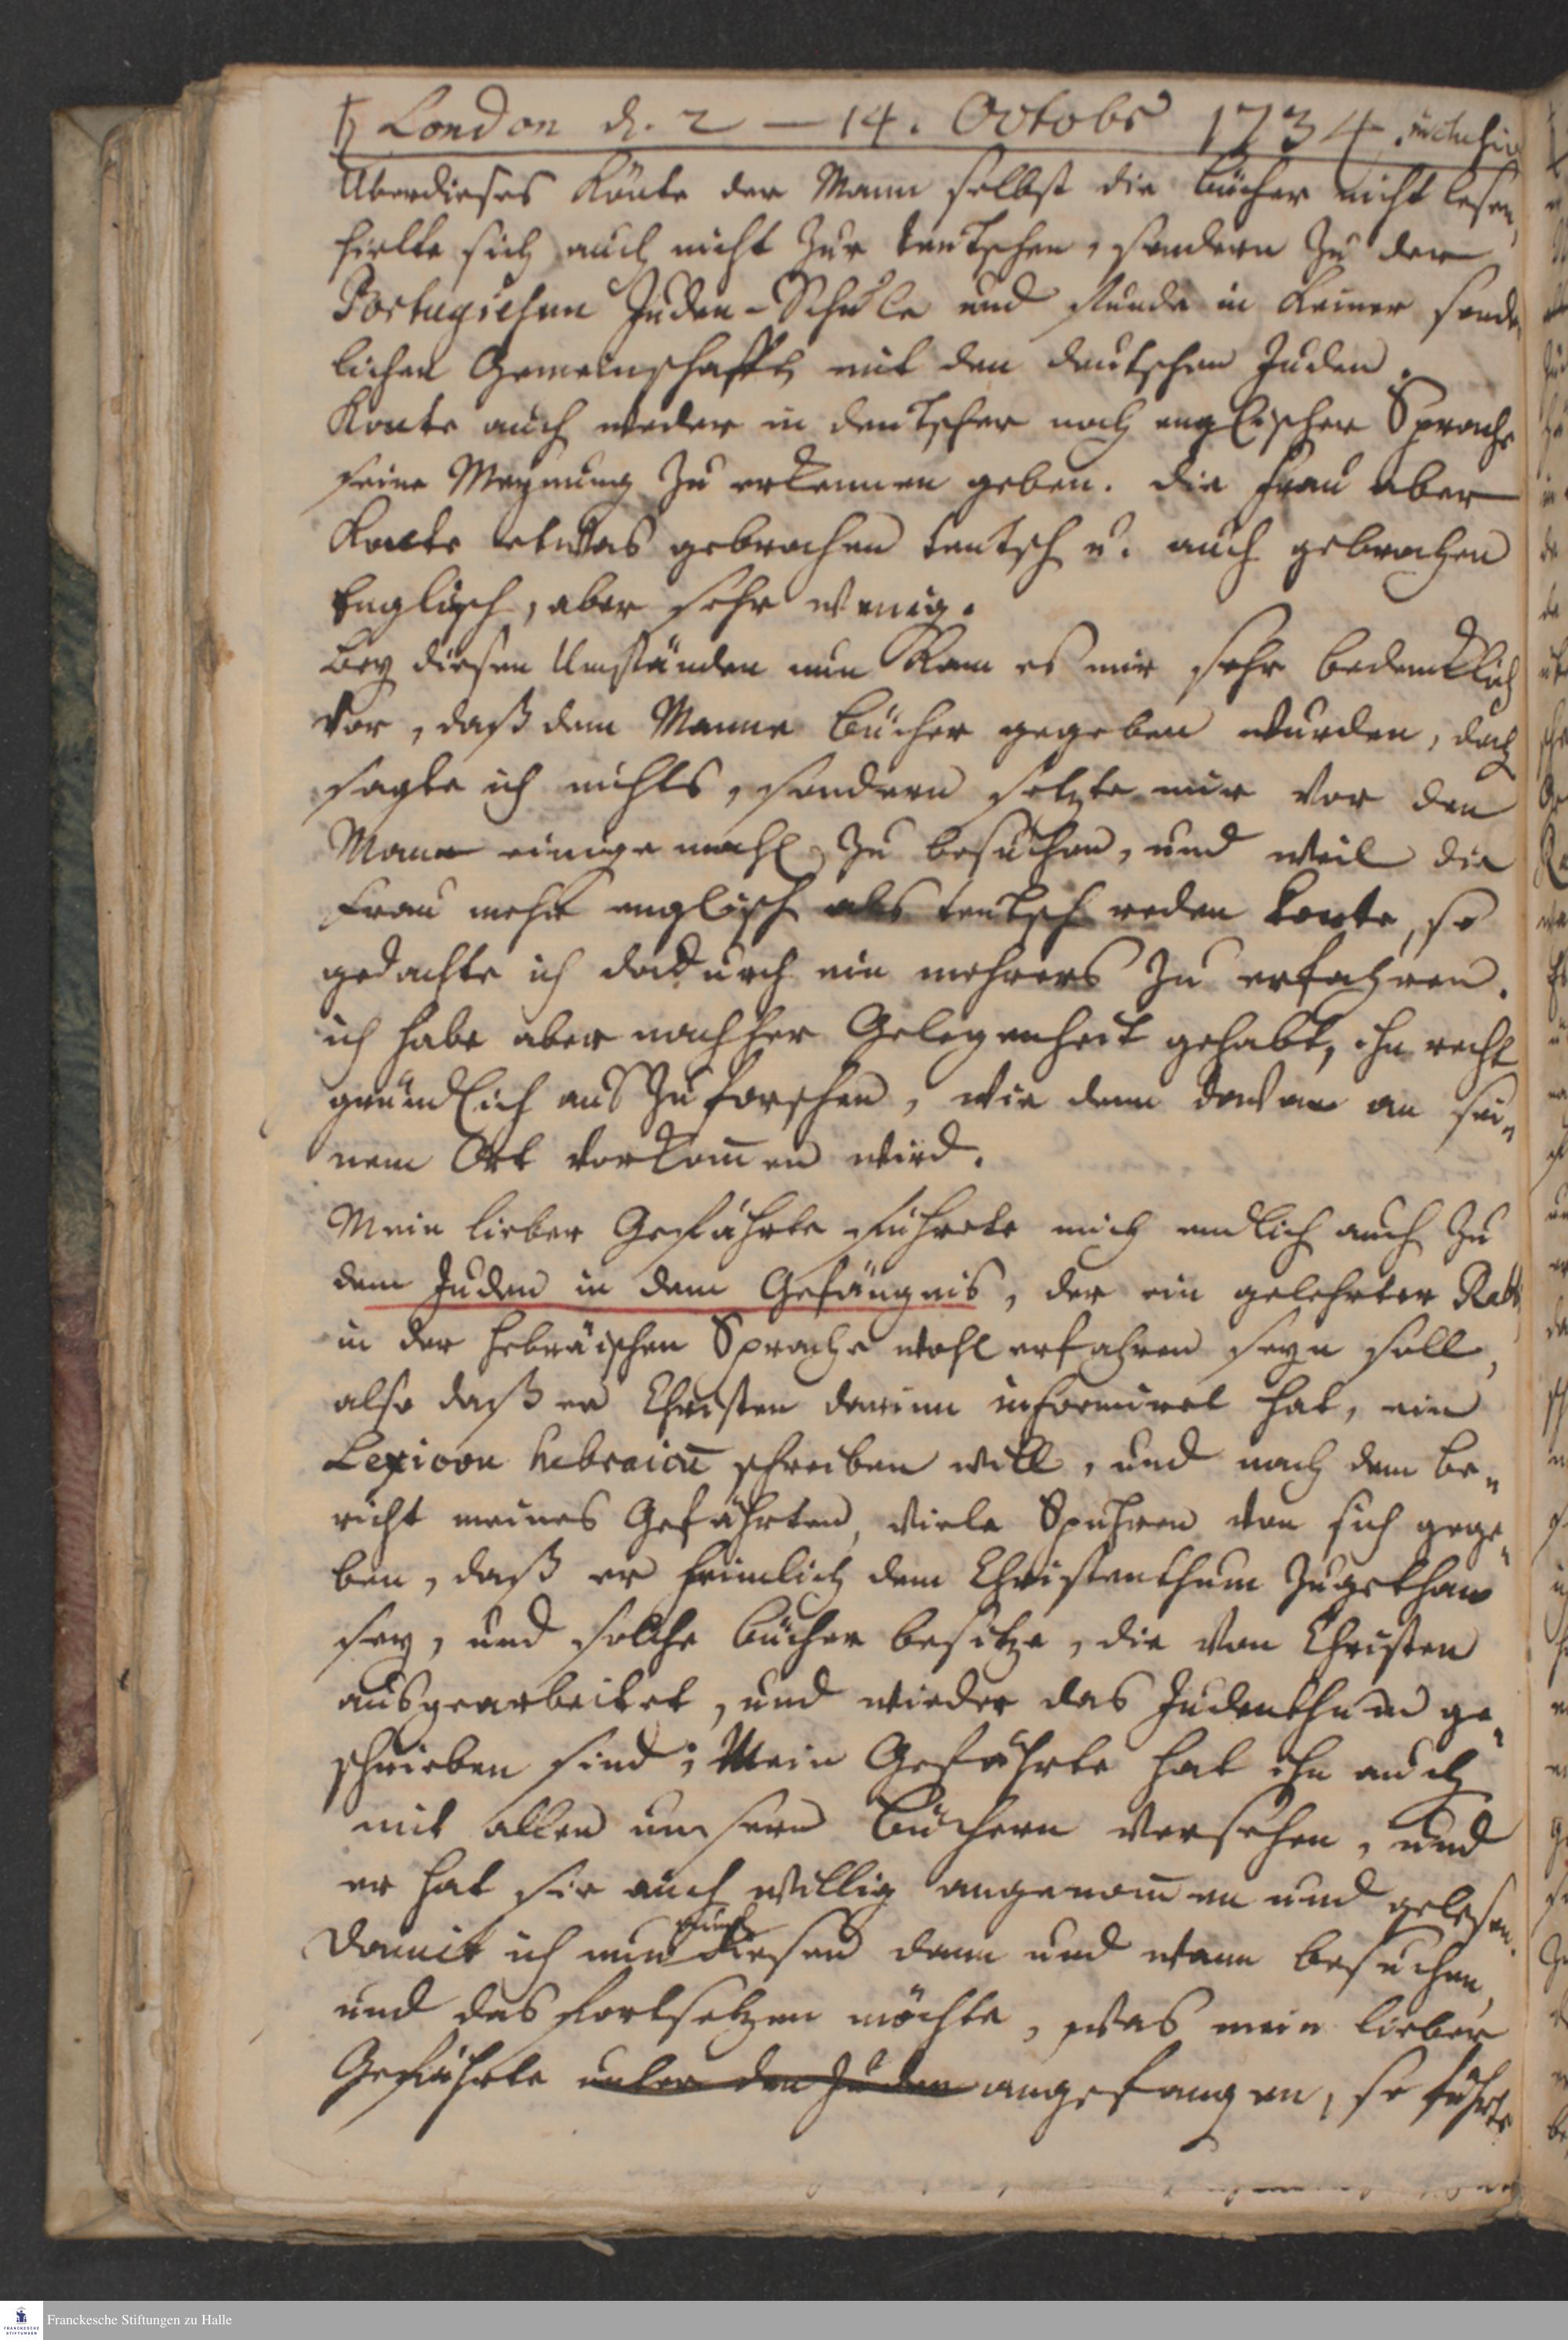 ħ London d. 2 – 14. Octobr 1734. inclusiv
Uberdieses könte der Mann selbst die bücher nicht lesen,
hielte sich auch nicht zur teutschen, sondern zu der
Portugiesen Juden-Schule und stunde in keiner sonder
lichen Gemeinschafft mit den deutschen Juden.
Konte auch weder in deutscher noch englischer Sprache
seine Meynung zu erkennen geben. die Frau aber
konte etwas gebrochen teutsch u. auch gebrochen
Englisch, aber sehr wenig.
Bey diesen Umständen nun kam es mir sehr bedencklich
vor, daß dem Manne bücher gegeben wurden, doch
sagte ich nichts, sondern setzte mir vor den
Mann einige mahl zu besuchen, und weil die
Frau mehr englisch als teutsch reden konte, so
gedachte ich dadurch ein mehrers zu erfahren.
ich habe aber nachher Gelegenheit gehabt, ihn recht
gründlich aus zu forschen, wie denn davon an sei-
nem Ort vorkom̄en wird.
Mein lieber Gefährte führete mich endlich auch zu
dem Juden in dem Gefängnis, der ein gelehrter Rabb
in der hebräischen Sprache wohl erfahren seyn soll,
also daß er Christen darinn informiret hat, ein
Lexicon hebraicū schreiben will, und nach dem be-
richt meines Gefährten, viele Spuhren von sich gege-
ben, daß er heimlich dem Christenthum zugethan
sey, und solche bücher besitze, die von Christen
ausgearbeitet, und wieder das Judenthum ge-
schrieben sind; Mein Gefährte hat ihn auch
mit allen unsern büchern versehen, und
er hat sie auch willig angenom̄en und gelesen.
Damit ich nun auch diesen dann und wann besuchen,
und das fortsetzen möchte, was mein lieber
Gefährte unter den Juden angefangen, so führte
Franckesche Stiftungen zu Halle